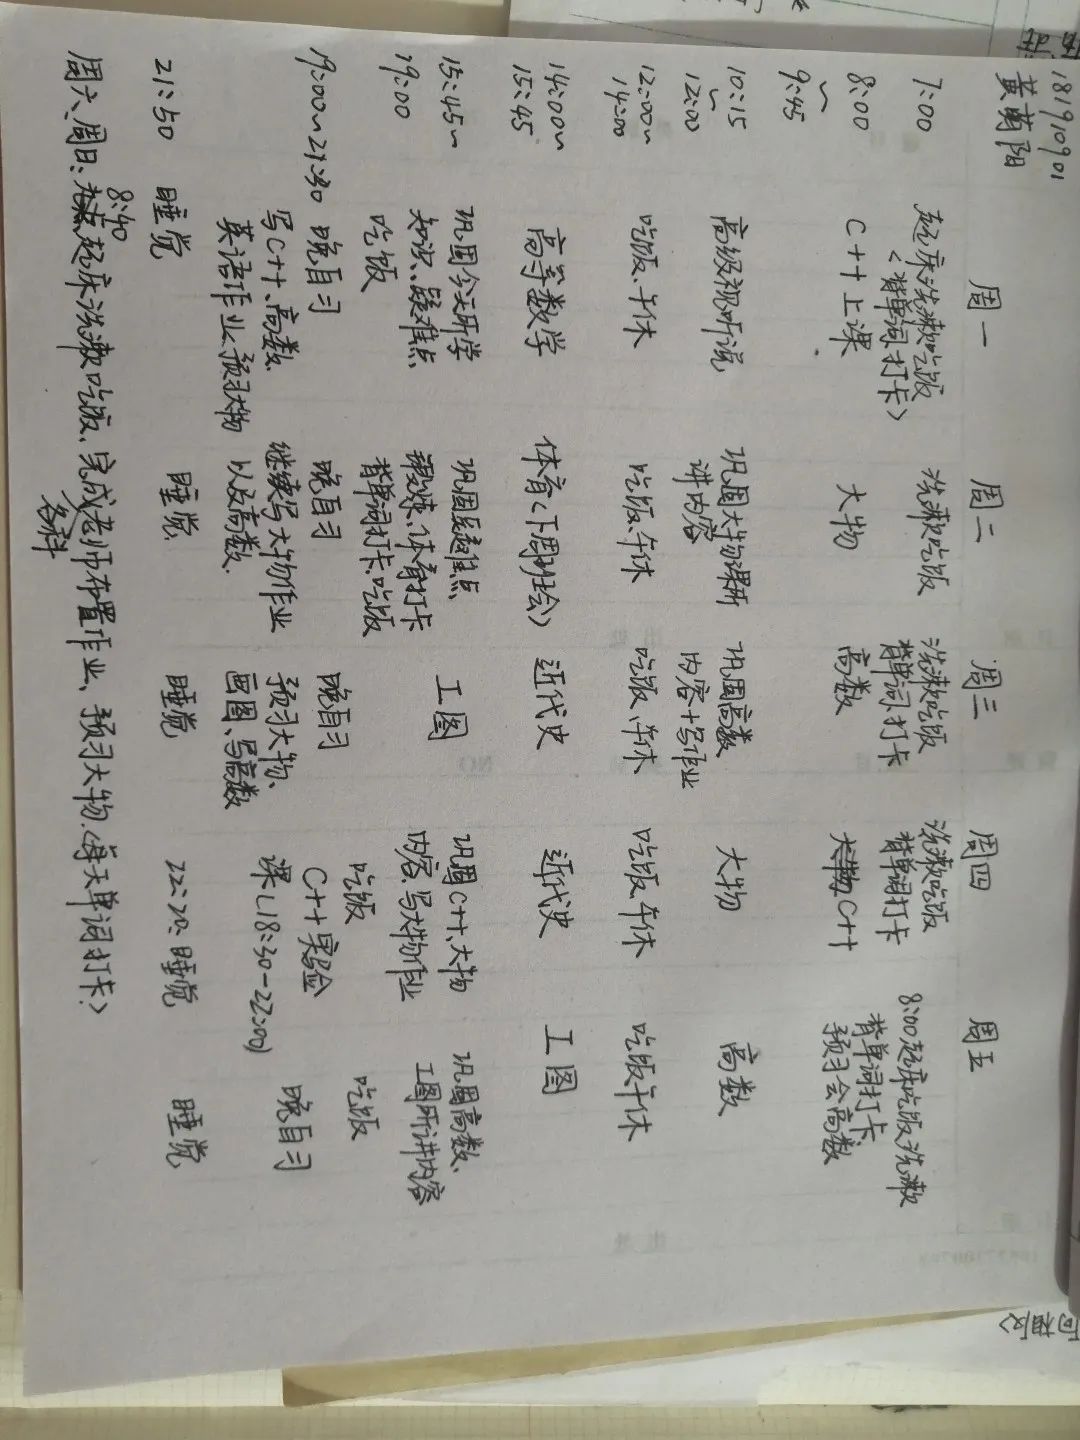 181910901
黄菊阳
周一 周二 周三 周四 周五
7:00 起床洗漱吃饭 洗漱吃饭 洗漱吃饭 洗漱吃饭 8:00起床吃饭洗漱
<背单词,打卡> 背单词,打卡 背单词打卡 背单词打卡
8:00 C++上课 大物 高数 C++ 预习会高数
~
9:45
10:15 高级视听说 巩固大物课所 巩固高数 大物 高数
~ 讲内容 内容+写作业
12:00
12:00~ 吃饭、午休 吃饭、午休 吃饭、午休 吃饭、午休 吃饭午休
14:00
14:00~ 高等数学 体育<下周班会> 近代史 近代史 工图
15:45
15:45~ 巩固今天所学 巩固疑难点 工图 巩固C++、大物 巩固高数、
19:00 知识、疑难点 锻炼、体育打卡 内容、写大物作业 工图所讲内容
吃饭 背单词打卡、吃饭 吃饭 吃饭
19:00~21:30 晚自习 晚自习 晚自习 C++实验 晚自习
写C++、高数、 继续写大物作业 预习大物、 课(18:30-22:00)
英语作业、预习大物 以及高数. 画图、写高数
21:50 睡觉 睡觉 睡觉 22:20:睡觉 睡觉
8:40
周六、周日:起床洗漱吃饭、完成老师布置作业、预习大物.<每天单词打卡>
各科